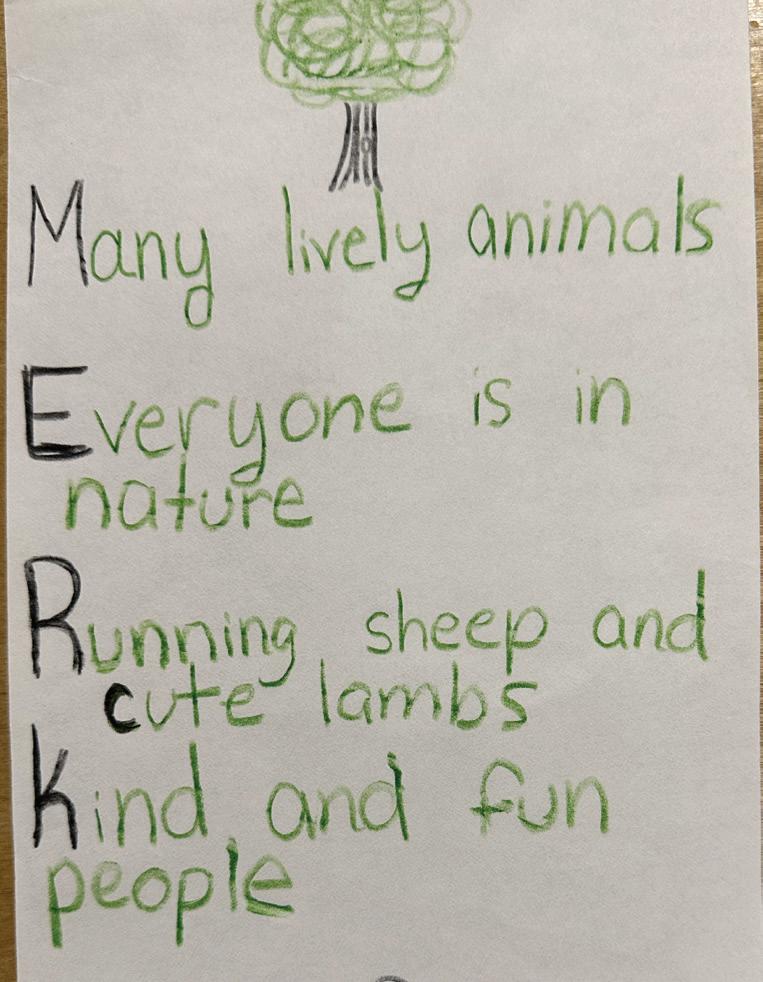 Many lively animals
Everyone is in
nature
Running sheep and
cute lambs
Kind and fun
people